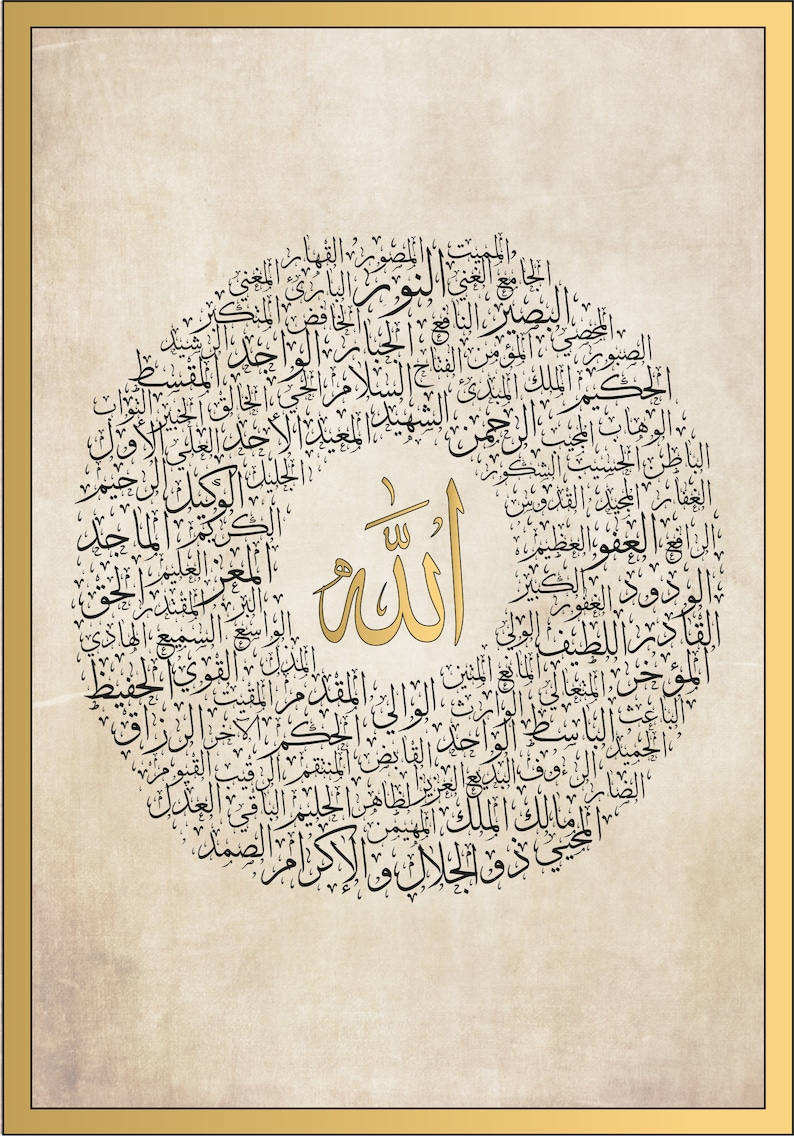 المميت المصور القهار
الجامع الغني النور البارئ المغني
البصير النافع الخافض المتكبر
المحصي الجبار الواحد الرشيد
الصبور المؤمن الفتاح المقسط
الحكيم الملك المبدئ السلام الحي الخالق الخبير التواب
الوهاب المجيب الرحمن الشهيد المعيد الأحد العلي الأول
الباطن الحسيب الشكور الجليل الوكيل الرحيم
الغفار المجيد القدوس
الرافع العفو العظيم الكريم الماجد
الودود الغفور الكبير المعز العليم الحق
البر المقتدر
القادر اللطيف الولي الواسع السميع الهادي
الله
المؤخر المتعالي المانع المتين المذل القوي الحفيظ
الباعث الباسط الوارث الوالي المقدم المقيت
الحميد الواحد الحكم الآخر الرزاق
الضار الرءوف البديع القابض المنتقم الرقيب القيوم
العزيز الظاهر الحليم الباقي العدل
المحيي مالك الملك المهيمن
ذو الجلال والإكرام الصمد